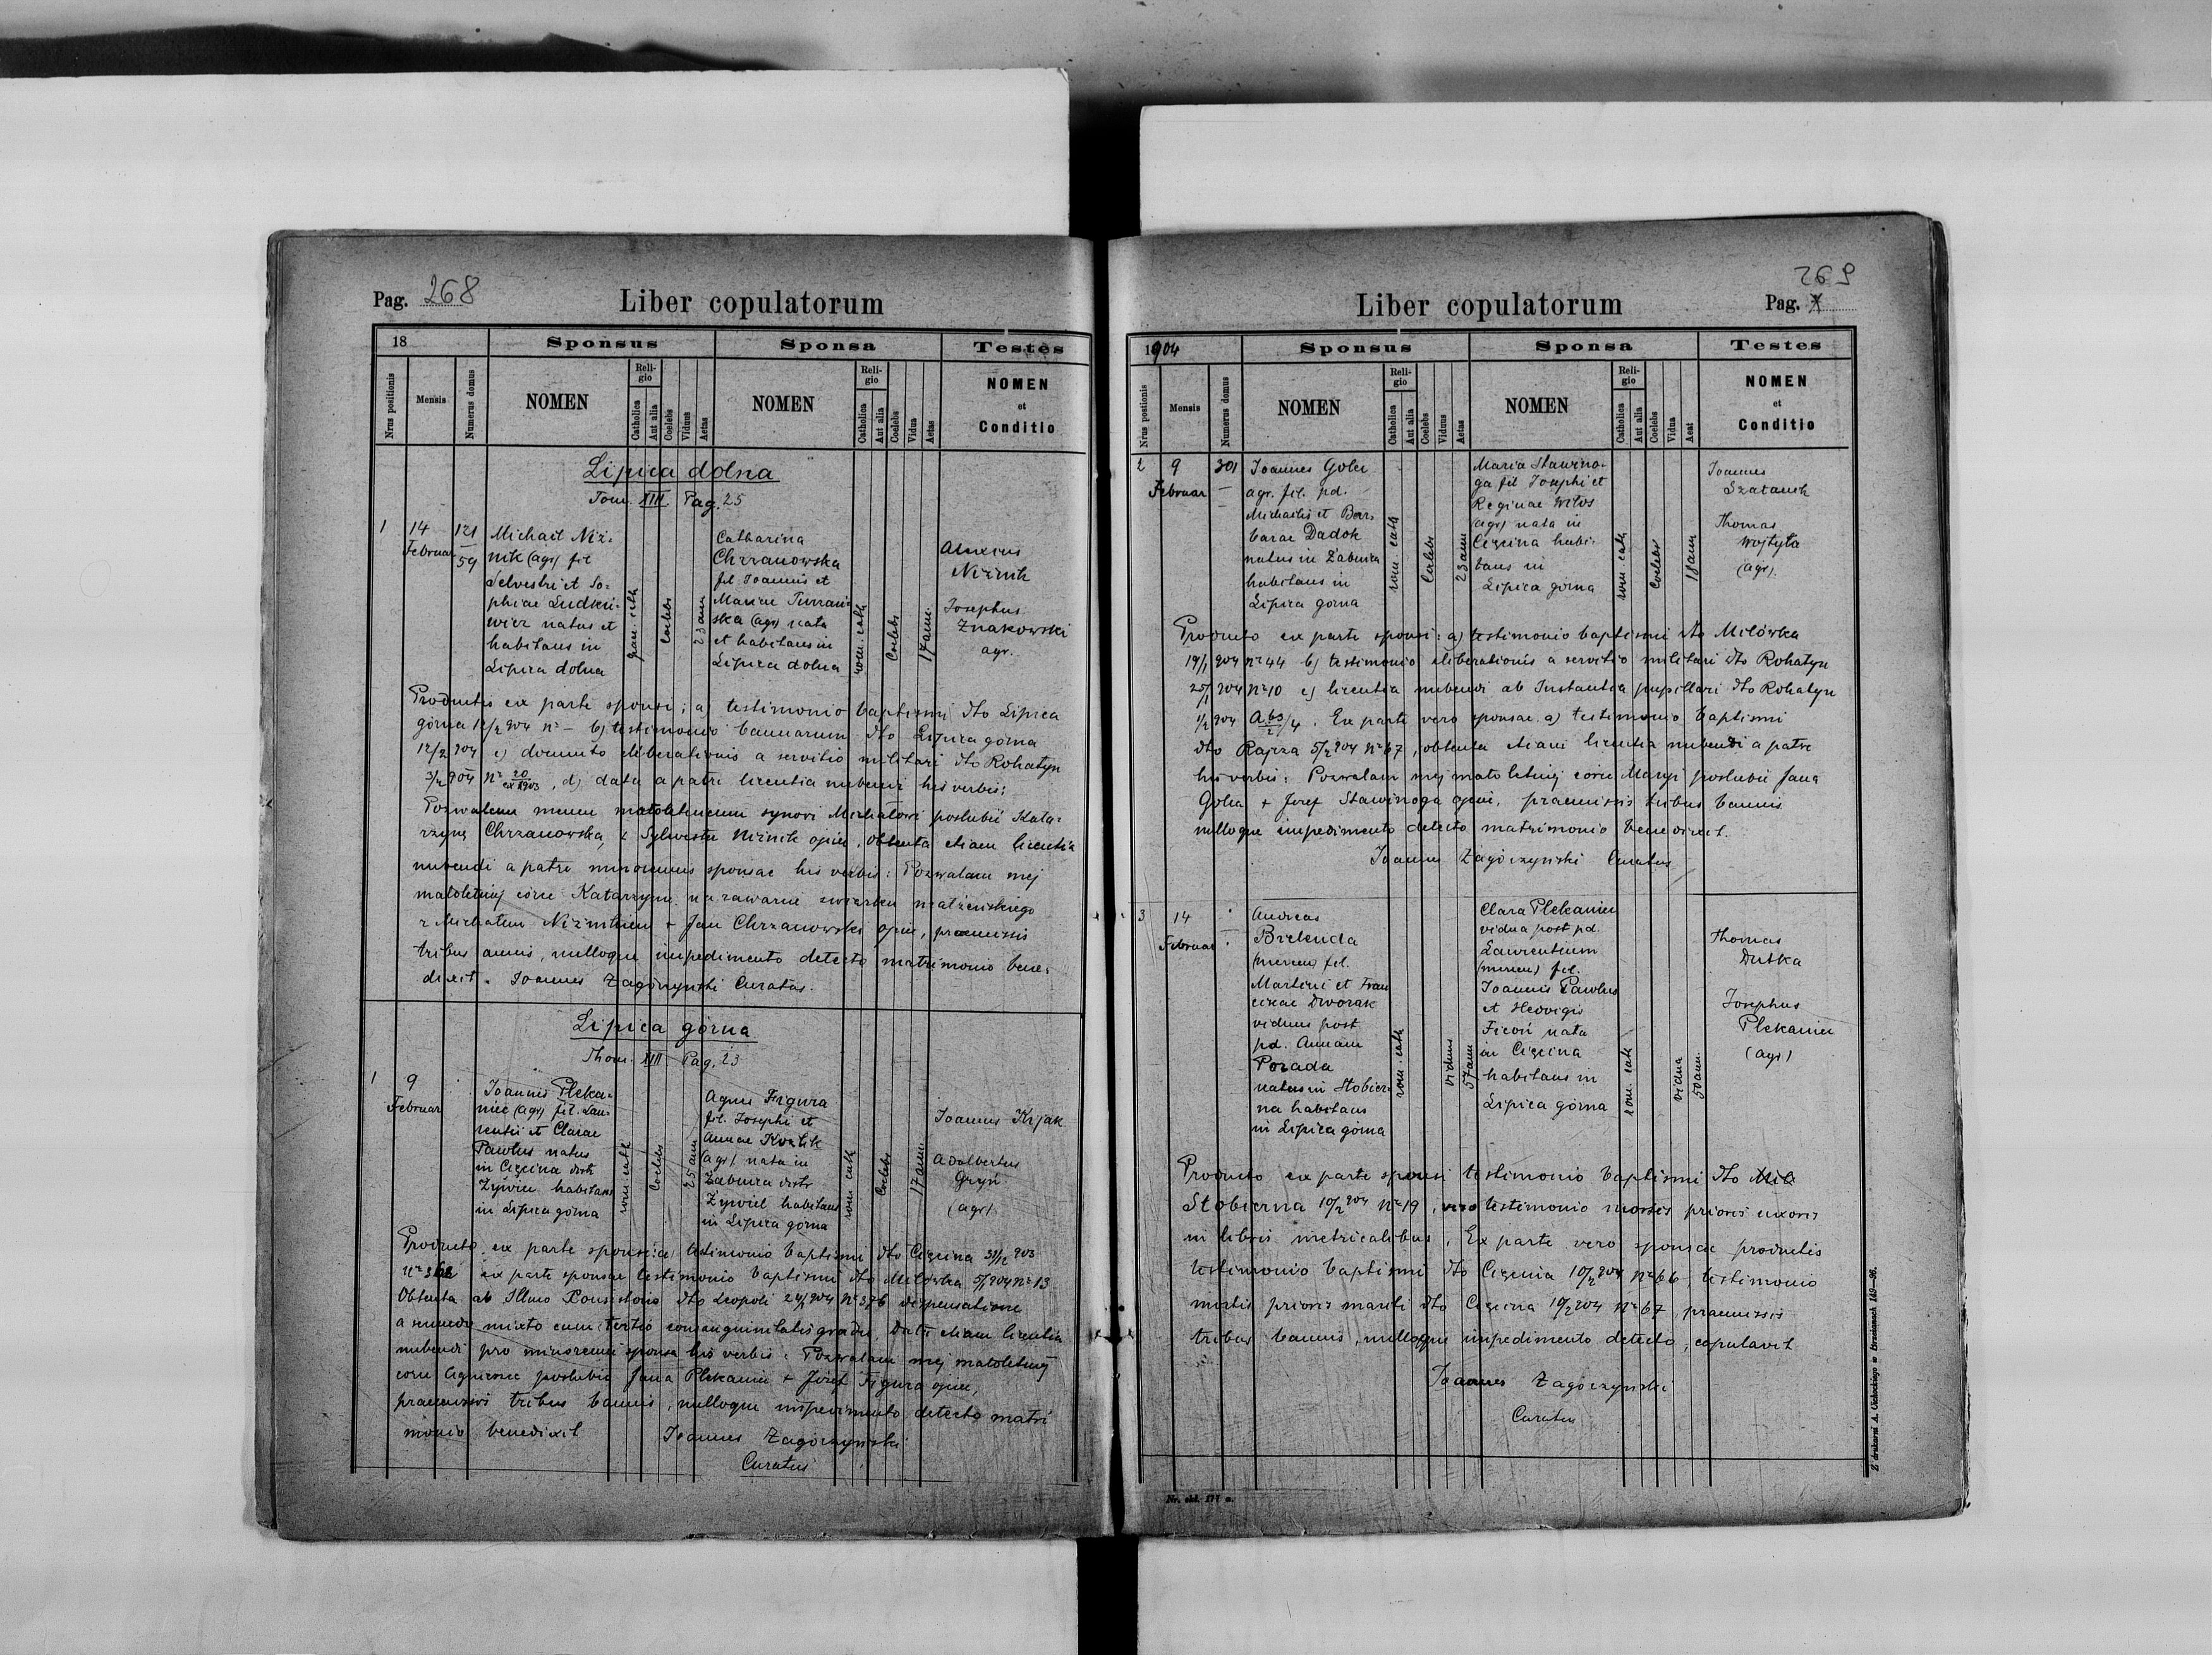 Pag. 268
Liber copulatorum
18
Sponsus
Sponsa
Testes
Nrus positionis
Mensis
Numerus domus
NOMEN
Religio
Catholica
Aut alia
Coelebs
Viduus
Aetas
NOMEN
Religio
Catholica
Aut alia
Coelebs
Vidua
Aetas
NOMEN
et
Conditio
Lipica dolna
Tom. XIII Pag. 25
1
14
Februar
121
59
Michael Niż-
nik (agr) fil
Selvestri et So-
phiae Ludkie-
wicz natus et
habitans in
Lipica dolna
Coelebs
23 ann
Catharina
Chrzanowska
fil Joannis et
Mariae
ska (agr) nata
et habitans in
Lipica dolna
rom. cath
Coelebs
17 ann.
Alexius
Niżnik
Josephus
Znakowski
agr.
Productis ex parte sponsi; a) testimonio baptismi dto Lipica
górna 12/2 904 nr – b) testimonio bannorum dto Lipica górna
12/2 904 c) documto eliberationis a servitio militari dto Rohatyn
3/2 904 Nr 20/ex 1903, d) data a patre licentia nubendi his verbis:
Pozwalam memu małoletniemu synowi Michałowi poślubić Kata-
rzynę Chrzanowską + Sylwester Niżnik ojciec, Obtenta etiam licentia
nubendi a patre minorennis sponsae his verbis: Pozwalam mej
małoletniej córce Katarzynie na zawarcie związku małżeńskiego
z Michałem Niżnikiem + Jan Chrzanowski ojciec, praemissis
tribus annis, nulloque impedimento detecto matrimonio bene-
dixit. Joannes Zagórzyński Curatus.
Lipica górna
Thom. XIII Pag. 23
1
9
Februar
Joannes Pleka-
niec (agr) fil. Lau-
rentii et Clarae
Pawlus natus
in Cięcina distr
Żywiec habitans
in Lipica górna
rom. cath
Coelebs
25 ann
Agnes Figura
fil. Josephi et
Annae Kozlik
(agr) nata in
Żabnica distr
Żywiec habitans
in Lipica górna
rom cath
Coelebs
17 ann
Joannes Kijak
Adalbertus
Gryń
(agr)
Producto ex parte sponsi: a) testimonio baptismi dto Cięcina 31/12 903
ex parte sponsae testimonio baptismi dto Milówka 5/1 904 nr 13
Obtenta ab Illmo Consistorio dto Leopoli 24/1 904 Nr 376 dispensatione
a secundo mixto cum tertio consanguinitatis gradu, Data etiam licentia
nubendi pro minorenni sponsa his verbis: Pozwalam mej małoletniej
córce Agnieszce poślubić Jana Plekaniec + Józef Figura ojciec,
praemissis tribus bannis, nulloque impedimento detecto matri
monio benedixit Joannes Zagórzyński
Curatus
269
Liber copulatorum
Pag.
1904
Sponsus
Sponsa
Testes
Nrus postionis
Mensis
Numerus domus
NOMEN
Religio
Catholica
Aut alia
Coelebs
Viduus
Aetas
NOMEN
Religio
Catholica
Aut alia
Coelebs
Vidua
Aeat
NOMEN
et
Conditio
2
9
Februar
301
Joannes Golec
agr. fil. pd.
Michaelis et Bar-
barae Dadok
natus in Żabnica
habitans in
Lipica górna
rom. cath
Coelebs
23 ann
Maria Stawino-
ga fil Josephi et
Reginae Witos
(agr) nata in
Cięcina habi-
tans in
Lipica górna
rom. cath
Coelebs
18 ann
Joannes
Szatanik
Thomas
Wojtyła
(agr).
Producto ex parte sponsi: a) testimonio baptismi dto Milówka
19/1 904 nr 44 b) testimonio eliberationis a servitio militari dto Rohatyn
25/1 904 Nr 10 c) licentia nubendi ab Instantia pupillari dto Rohatyn
1/2 904 A 63/2/4. Ex parte vero sponsae. a) testimonio baptismi
dto Rajcza 5/2 904 Nr 67, obtenta etiam licentia nubendi a patre
his verbis: Pozwalam mej małoletniej córce Maryi poślubić Jana
Golca + Józef Stawinoga ojciec, praemissis tribus bannis
nulloque impedimento detecto matrimonio benedixit.
Joannes Zagórzyński Curatus
3
14
Februar
Andreas
Brzkenda
(mercen) fil.
Martini et Fran
ciscae Dworak
viduus post
pd. Annam
Porada
natus in Stobier-
na habitans
in Lipica górna
rom. cath
viduus
57 ann
Clara Plekaniec
vidua post pd.
Laurentium
(mercen) fil.
Joannis Pawlus
et Hedvigis
Ficoń nata
in Cięcina
habitans in
Lipica górna
rom. cath
vidua
50 ann.
Thomas
Dutka
Josephus
Plekaniec
(agr)
Producto ex parte sponsi testimonio baptismi dto Mil
Stobierna 10/2 904 Nr 19, vero testimonio mortis prioris uxoris
in libris metricalibus. Ex parte vero sponsae productis
testimonio baptismi dto Cięcina 10/2 904 Nr 66, testimonio
mortis prioris mariti dto Cięcina 10/2 904 Nr 67, praemissis
tribus bannis, nulloque impedimento detecto, copulavit
Joannes Zagórzyński
Curatus
Nr. skl. 177 a.
Z drukarni A. Cichockiego w Brzeżanach 149—96.